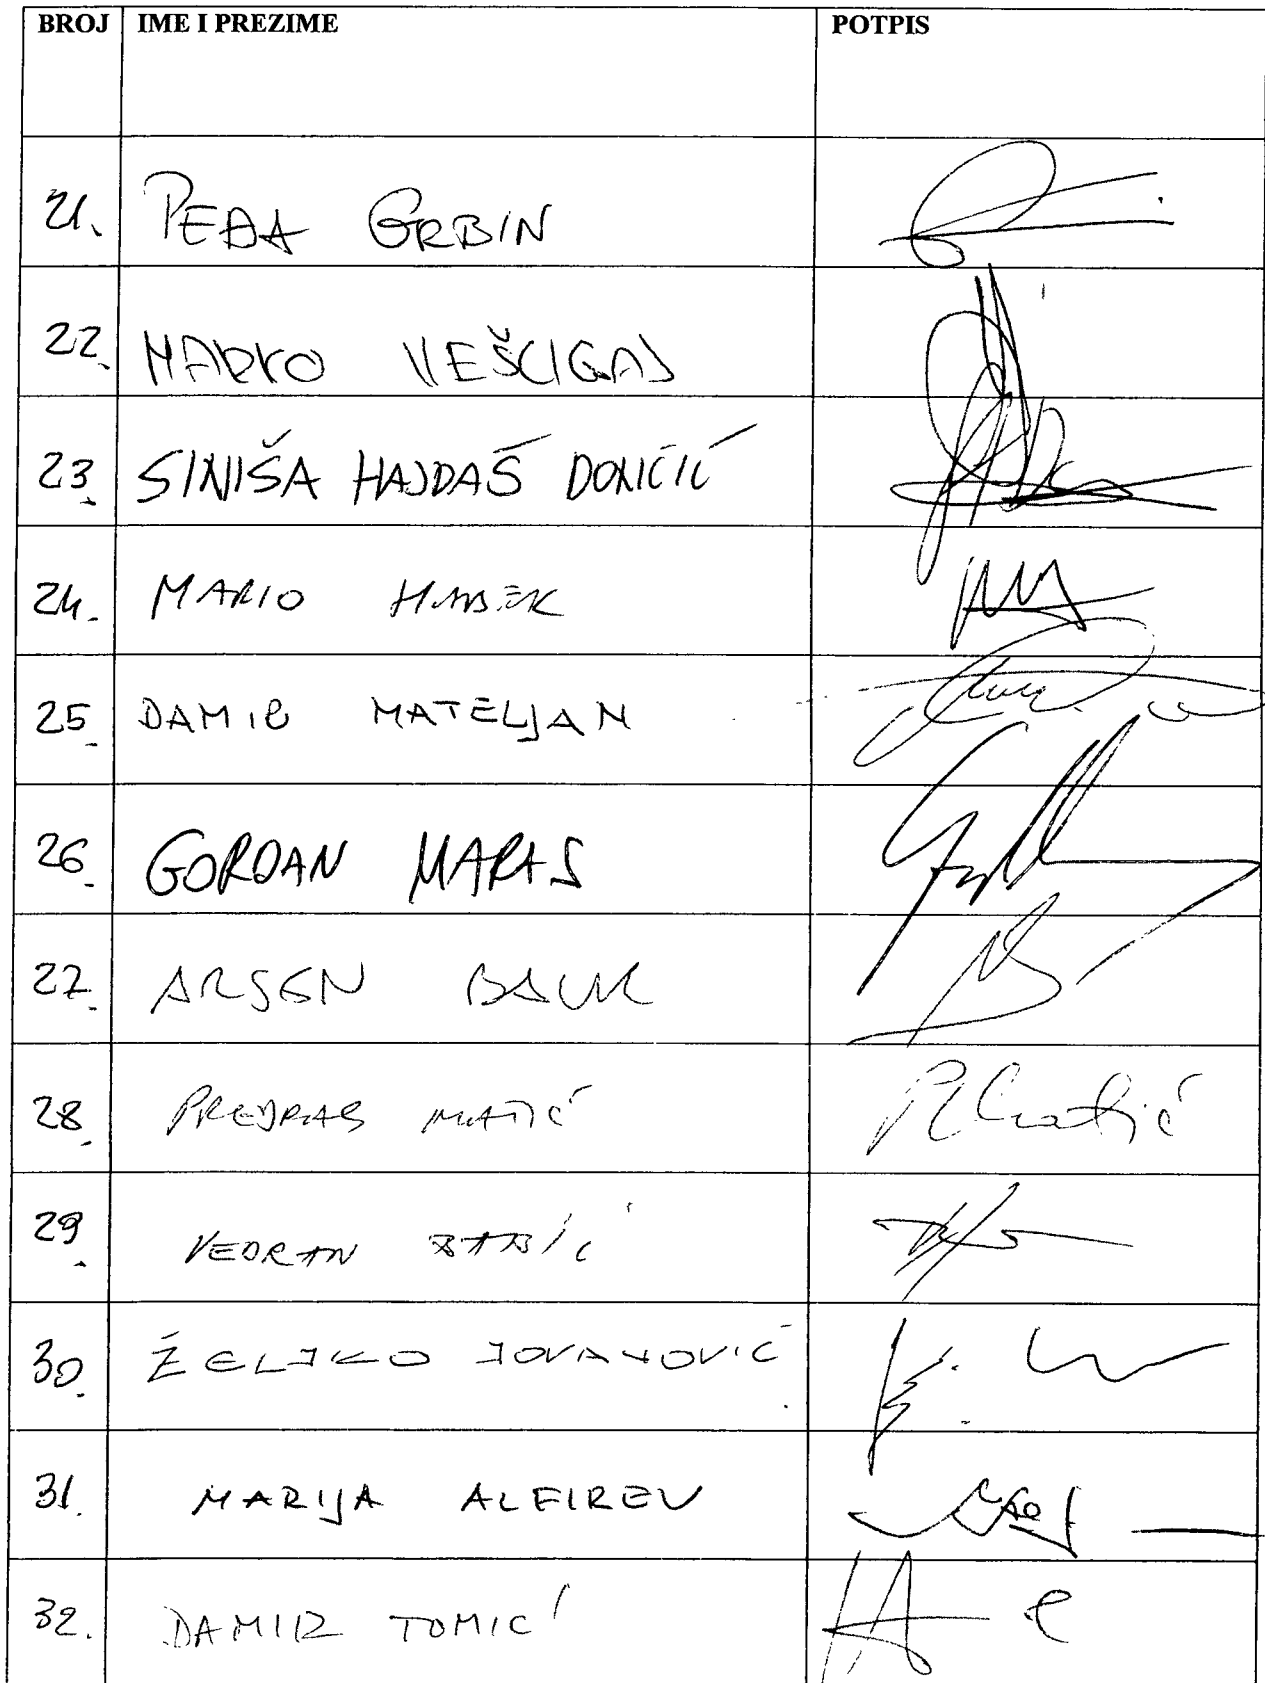 BROJ IME I PREZIME POTPIS
21. PEĐA GRBIN
22. MARKO VEŠLIGAJ
23. SINIŠA HAJDAŠ DONČIĆ
24. MARIO HABEK
25. DAMIR MATELJAN
26. GORDAN MARAS
27. ARSEN BAUK
28. PREDRAG MATIĆ P Matić
29. VEDRAN BABIĆ
30. ŽELJKO JOVANOVIĆ
31. MARIJA ALFIREV
32. DAMIR TOMIĆ